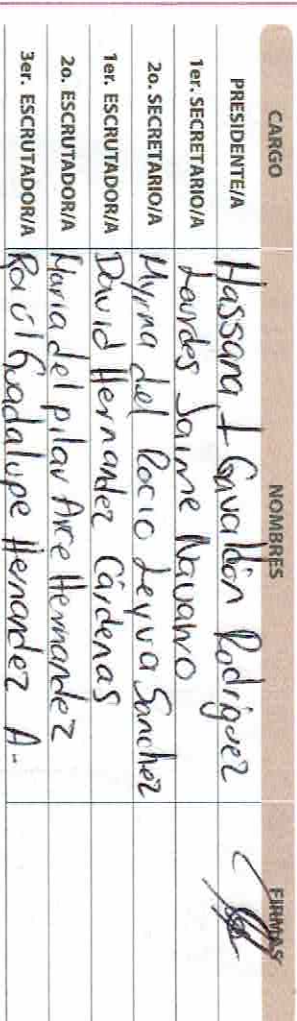 CARGO NOMBRES FIRMAS
PRESIDENTE/A Hassana I Gavaldón Rodriguez
1er. SECRETARIO/A Lourdes Jaime Navarro
2o. SECRETARIO/A Myrna del Rocio Leyva Sanchez
1er. ESCRUTADOR/A David Hernandez Cárdenas
2o. ESCRUTADOR/A Maria del pilar Arce Hernandez
3er. ESCRUTADOR/A Raúl Guadalupe Hernandez A.